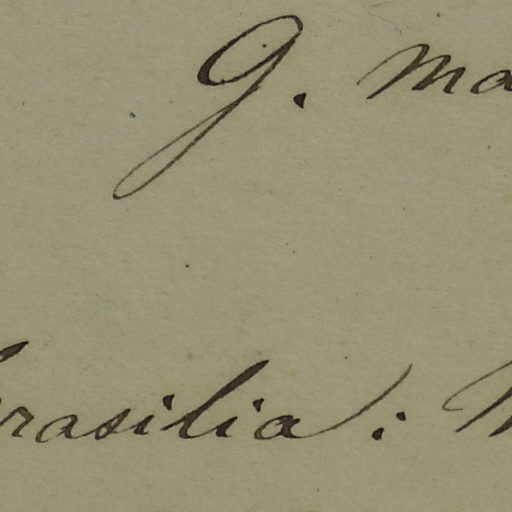 G. ma
rasilia: M